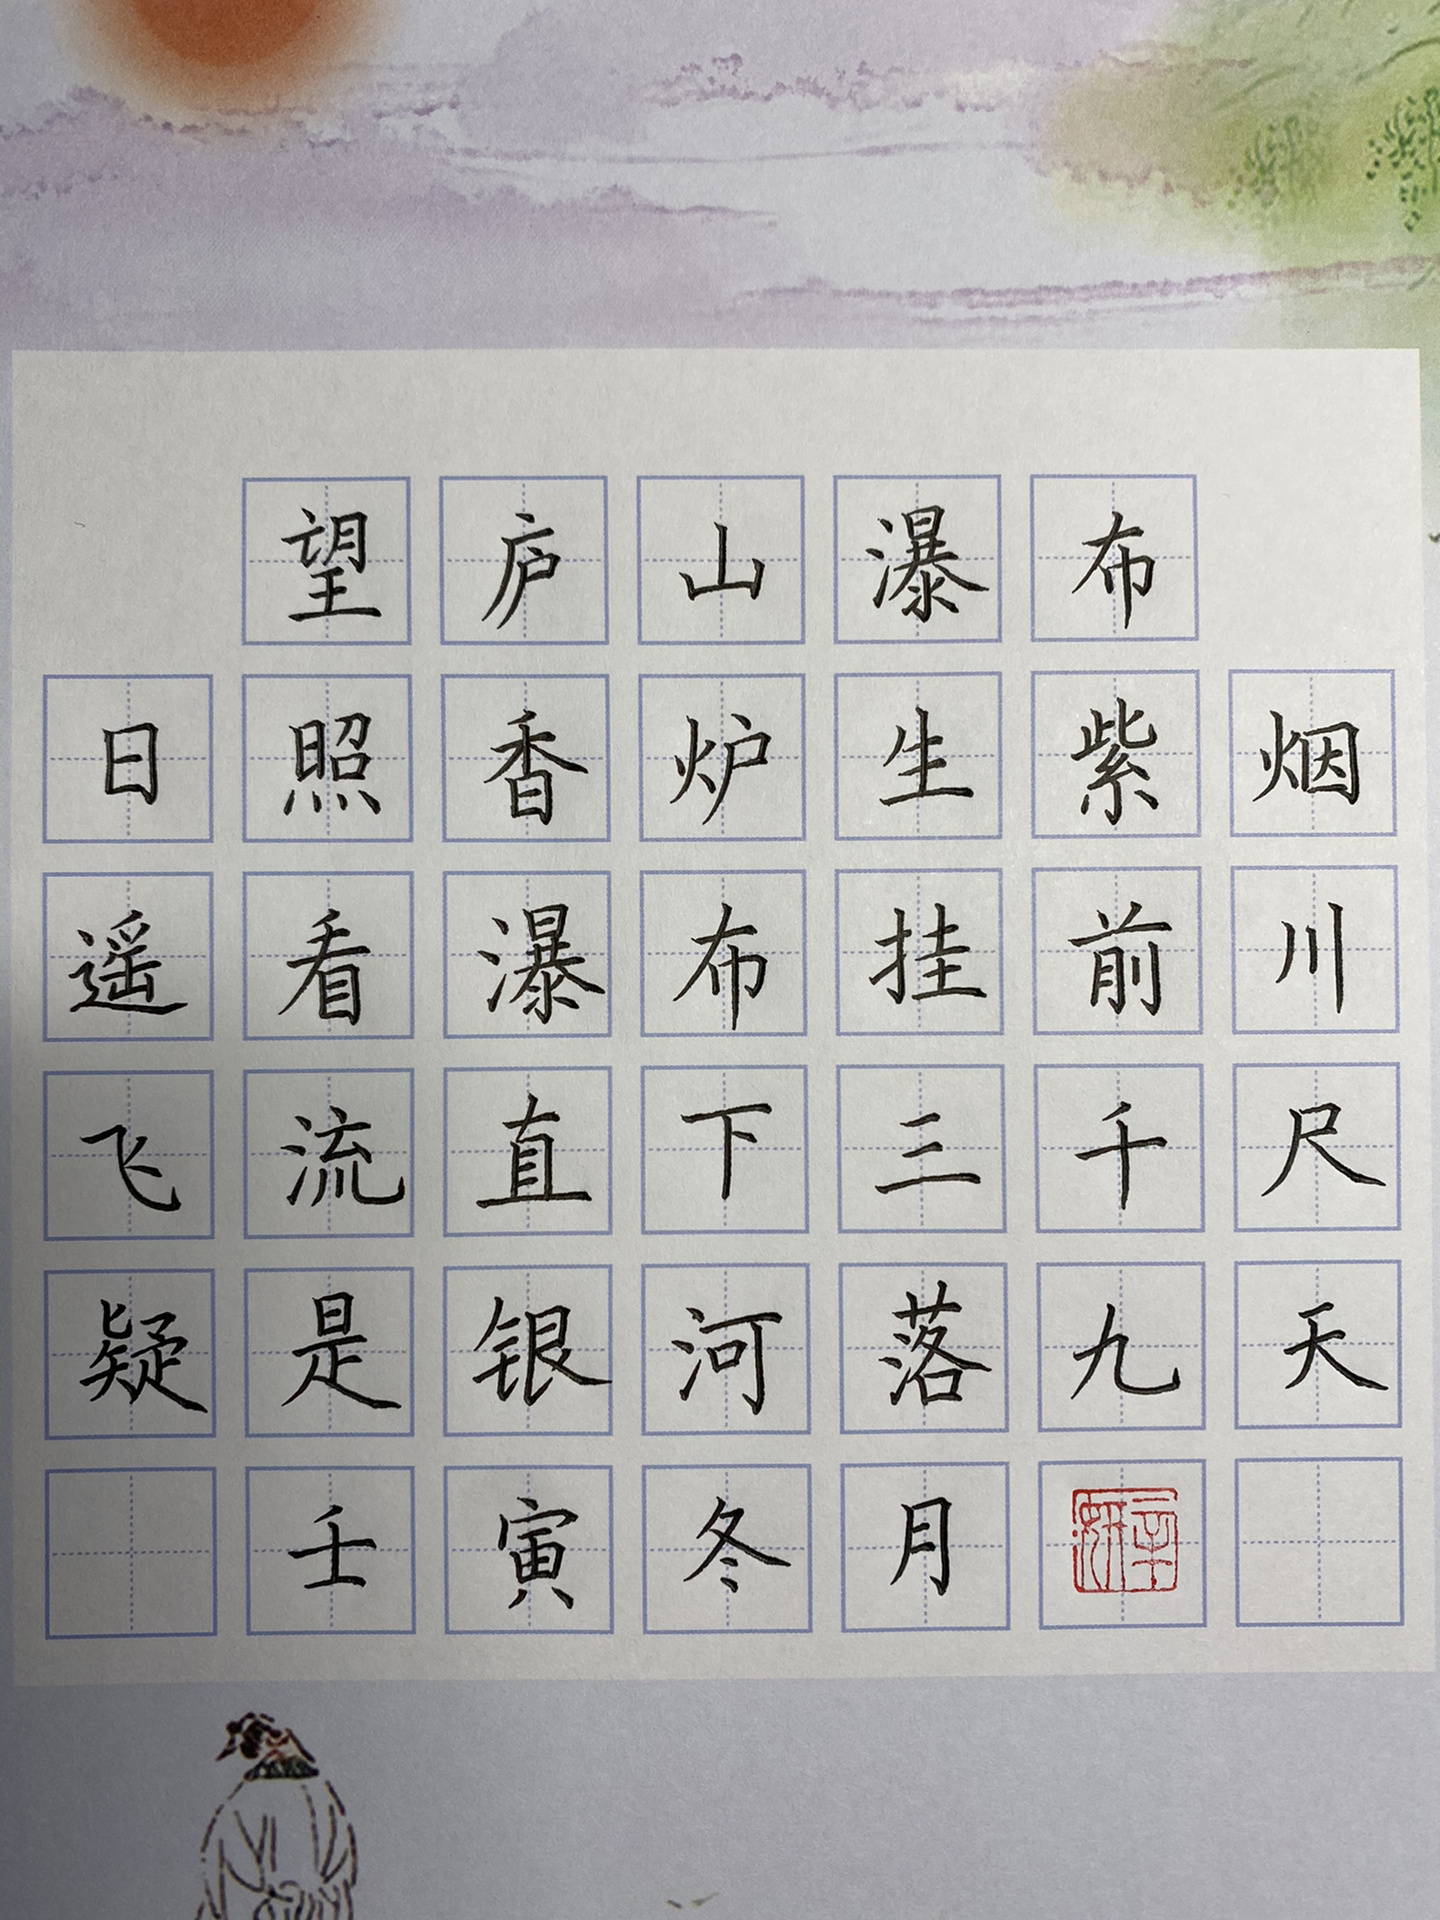 望庐山瀑布
日照香炉生紫烟
遥看瀑布挂前川
飞流直下三千尺
疑是银河落九天
壬寅冬月